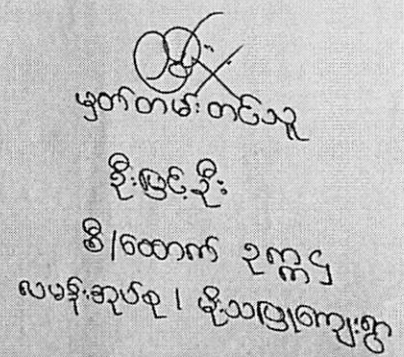 မှတ်တမ်းတင်သူ
ဦးမြင့်ဦး
စီ/ထောက် ဥက္ကဌ
လမန်းအုပ်စု ၊ မိုးသာမြကျေးရွာ